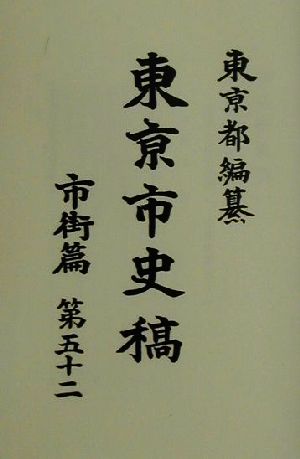 東亰都編纂
東亰市史稿
市街篇 第五十二